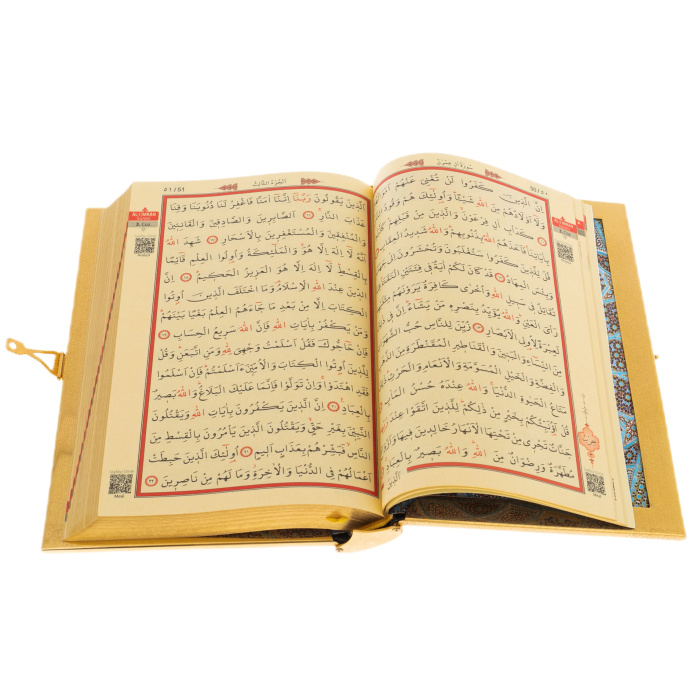 سورة آل عمران
اِنَّ الَّذٖينَ كَفَرُوا لَنْ تُغْنِيَ عَنْهُمْ
وَلَا اَوْلَادُهُمْ مِنَ اللّٰهِ شَيْـًٔا وَاُولٰٓئِكَ هُمْ وَقُودُ
كَدَاْبِ اٰلِ فِرْعَوْنَ وَالَّذٖينَ مِنْ قَبْلِهِمْ
بِاٰيَاتِنَا فَاَخَذَهُمُ اللّٰهُ بِذُنُوبِهِمْ وَاللّٰهُ شَدٖيدُ
قُلْ لِلَّذٖينَ كَفَرُوا سَتُغْلَبُونَ وَتُحْشَرُونَ
وَبِئْسَ الْمِهَادُ قَدْ كَانَ لَكُمْ اٰيَةٌ فٖي فِئَتَيْنِ
تُقَاتِلُ فٖي سَبٖيلِ اللّٰهِ وَاُخْرٰى كَافِرَةٌ يَرَوْنَهُمْ
رَاْيَ الْعَيْنِ وَاللّٰهُ يُؤَيِّدُ بِنَصْرِهٖ مَنْ يَشَٓاءُ اِنَّ فٖي
لَعِبْرَةً لِاُولِي الْاَبْصَارِ زُيِّنَ لِلنَّاسِ حُبُّ
مِنَ النِّسَٓاءِ وَالْبَنٖينَ وَالْقَنَاطٖيرِ الْمُقَنْطَرَةِ
وَالْفِضَّةِ وَالْخَيْلِ الْمُسَوَّمَةِ وَالْاَنْعَامِ وَالْحَرْثِ
مَتَاعُ الْحَيٰوةِ الدُّنْيَا وَاللّٰهُ عِنْدَهُ حُسْنُ الْمَاٰبِ
قُلْ اَؤُنَبِّئُكُمْ بِخَيْرٍ مِنْ ذٰلِكُمْ لِلَّذٖينَ اتَّقَوْا عِنْدَ
جَنَّاتٌ تَجْرٖي مِنْ تَحْتِهَا الْاَنْهَارُ خَالِدٖينَ فٖيهَا
مُطَهَّرَةٌ وَرِضْوَانٌ مِنَ اللّٰهِ وَاللّٰهُ بَصٖيرٌ بِالْعِبَادِ
٥١ / 51
الجزء الثالث
AL-İ İMRAN
3. Cüz
اَلَّذٖينَ يَقُولُونَ رَبَّنَٓا اِنَّنَٓا اٰمَنَّا فَاغْفِرْ لَنَا ذُنُوبَنَا وَقِنَا
عَذَابَ النَّارِ ١٦ اَلصَّابِرٖينَ وَالصَّادِقٖينَ وَالْقَانِتٖينَ
وَالْمُنْفِقٖينَ وَالْمُسْتَغْفِرٖينَ بِالْاَسْحَارِ ١٧ شَهِدَ اللّٰهُ
اَنَّهُ لَٓا اِلٰهَ اِلَّا هُوَ وَالْمَلٰٓئِكَةُ وَاُولُوا الْعِلْمِ قَٓائِمًا
بِالْقِسْطِ لَٓا اِلٰهَ اِلَّا هُوَ الْعَزٖيزُ الْحَكٖيمُ ١٨ اِنَّ
الدّٖينَ عِنْدَ اللّٰهِ الْاِسْلَامُ وَمَا اخْتَلَفَ الَّذٖينَ اُوتُوا
الْكِتَابَ اِلَّا مِنْ بَعْدِ مَا جَٓاءَهُمُ الْعِلْمُ بَغْيًا بَيْنَهُمْ
وَمَنْ يَكْفُرْ بِاٰيَاتِ اللّٰهِ فَاِنَّ اللّٰهَ سَرٖيعُ الْحِسَابِ ١٩
فَاِنْ حَٓاجُّوكَ فَقُلْ اَسْلَمْتُ وَجْهِيَ لِلّٰهِ وَمَنِ اتَّبَعَنِ وَقُلْ
لِلَّذٖينَ اُوتُوا الْكِتَابَ وَالْاُمِّيّٖنَ ءَاَسْلَمْتُمْ فَاِنْ اَسْلَمُوا
فَقَدِ اهْتَدَوْا وَاِنْ تَوَلَّوْا فَاِنَّمَا عَلَيْكَ الْبَلَاغُ وَاللّٰهُ بَصٖيرٌ
بِالْعِبَادِ ٢٠ اِنَّ الَّذٖينَ يَكْفُرُونَ بِاٰيَاتِ اللّٰهِ وَيَقْتُلُونَ
النَّبِيّٖنَ بِغَيْرِ حَقٍّ وَيَقْتُلُونَ الَّذٖينَ يَاْمُرُونَ بِالْقِسْطِ مِنَ
النَّاسِ فَبَشِّرْهُمْ بِعَذَابٍ اَلٖيمٍ ٢١ اُولٰٓئِكَ الَّذٖينَ حَبِطَتْ
اَعْمَالُهُمْ فِي الدُّنْيَا وَالْاٰخِرَةِ وَمَا لَهُمْ مِنْ نَاصِرٖينَ ٢٢
Meal